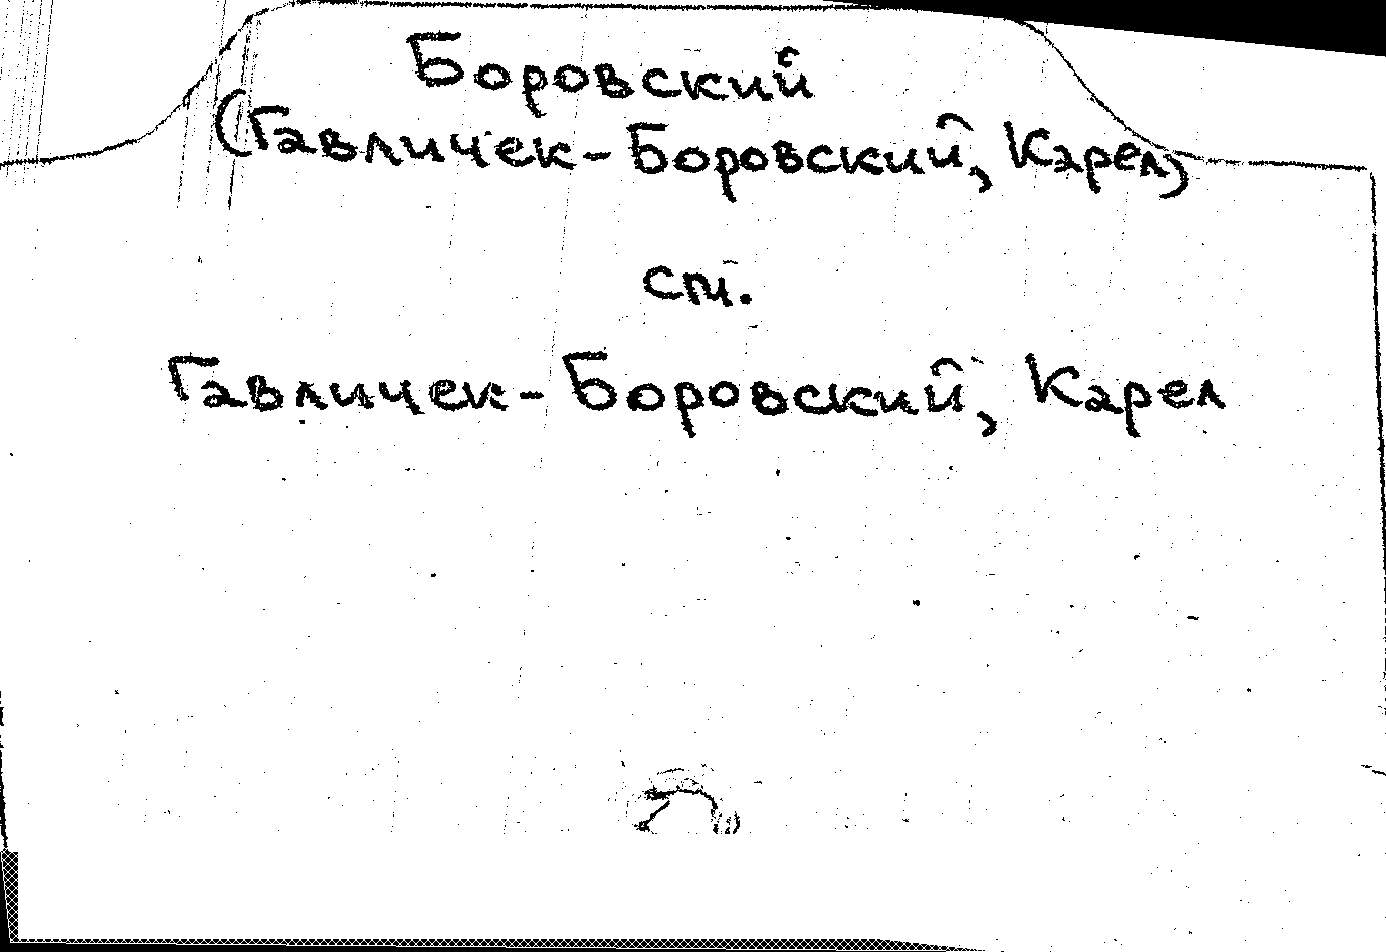 Боровский
(Гавличек-Боровский, Карел)
см.
Гавличек-Боровский, Карел